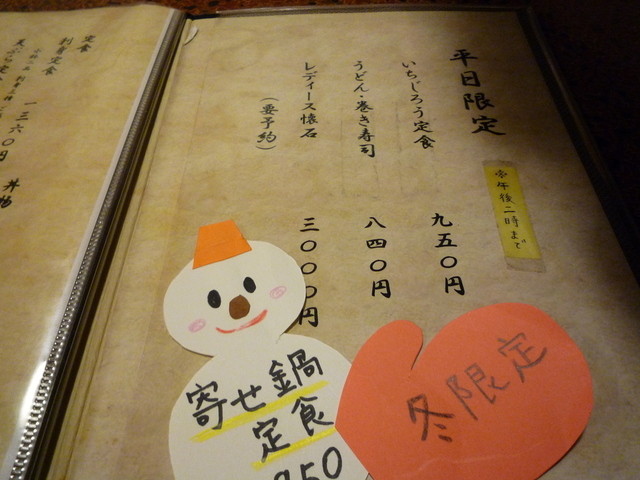 平日限定
いちじろう定食 九五〇円
うどん・巻き寿司 八四〇円
レディース懐石 三〇〇〇円
（要予約）
午後二時まで
冬限定
寄せ鍋
定食
950
定食
刺身定食
一三六〇円
丼物